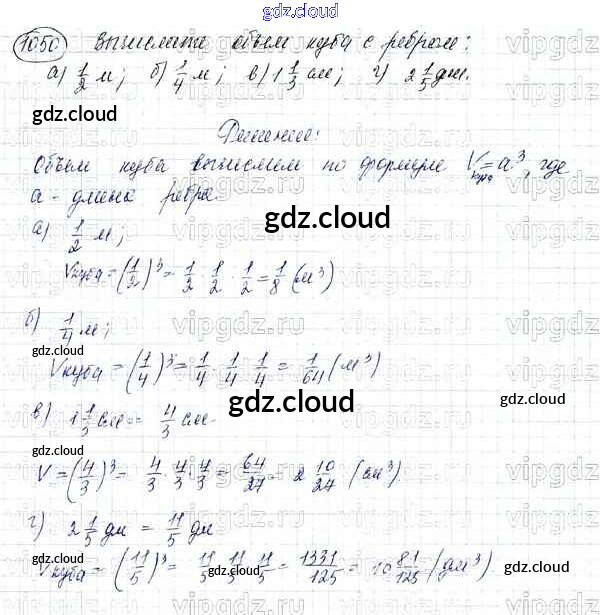 gdz.cloud
1050 Вычислите объем куба с ребром:
а) 1/2 м; б) 1/4 м; в) 1 1/3 см; г) 2 1/5 дм.
gdz.cloud
Решение:
Объем куба вычислим по формуле Vкуба = a³, где
a - длина ребра.
gdz.cloud
а) 1/2 м;
Vкуба = (1/2)³ = 1/2 · 1/2 · 1/2 = 1/8 (м³)
б) 1/4 м;
gdz.cloud
gdz.cloud
Vкуба = (1/4)³ = 1/4 · 1/4 · 1/4 = 1/64 (м³)
gdz.cloud
в) 1 1/3 см = 4/3 см.
gdz.cloud
V = (4/3)³ = 4/3 · 4/3 · 4/3 = 64/27 = 2 10/27 (см³).
г) 2 1/5 дм = 11/5 дм
gdz.cloud
gdz.cloud
gdz.cloud
Vкуба = (11/5)³ = 11/5 · 11/5 · 11/5 = 1331/125 = 10 81/125 (дм³)